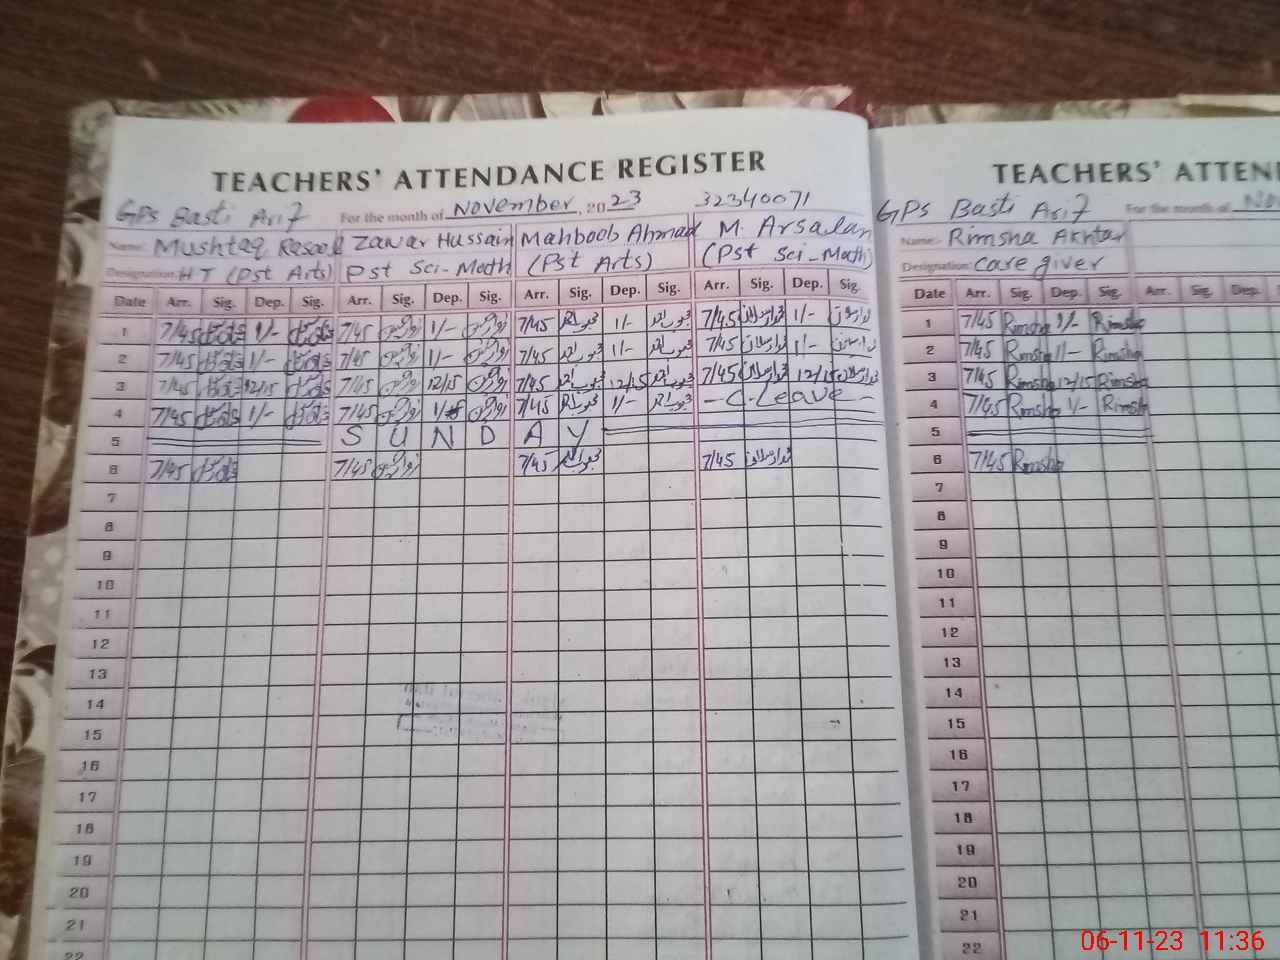 TEACHERS' ATTENDANCE REGISTER
GPS Basti Arif For the month of November, 2023 32340071
Name: Mushtaq Rasool Zawar Hussain Mahboob Ahmad M. Arsalan
Designation: HT (Pst Arts) Pst Sci-Math (Pst Arts) (Pst Sci-Math)
Date Arr. Sig. Dep. Sig. Arr. Sig. Dep. Sig. Arr. Sig. Dep. Sig. Arr. Sig. Dep. Sig.
1 7/45 1/- 7/45 1/- 7/45 محبوب احمد 1/- محبوب احمد 7/45 1/-
2 7/45 1/- 7/45 1/- 7/45 محبوب احمد 1/- محبوب احمد 7/45 1/-
3 7/45 12/15 7/45 12/15 7/45 محبوب احمد 12/15 محبوب احمد 7/45 12/15
4 7/45 1/- 7/45 7/45 محبوب احمد 1/- محبوب احمد - C. Leave -
5 S U N D A Y
6 7/45 7/45 7/45 محبوب احمد 7/45
7
8
9
10
11
12
13
14
15
16
17
18
19
20
21
22
TEACHERS' ATTEN
GPS Basti Arif For the month of No
Name:- Rimsha Akhtar
Designation: Care giver
Date Arr. Sig. Dep. Sig. Arr. Sig. Sig. Dep.
1 7/45 Rimsha 1/- Rimsha
2 7/45 Rimsha 1/- Rimsha
3 7/45 Rimsha 12/15 Rimsha
4 7/45 Rimsha 1/- Rimsha
5
6 7/45 Rimsha
7
8
9
10
11
12
13
14
15
16
17
18
19
20
21
22
06-11-23 11:36